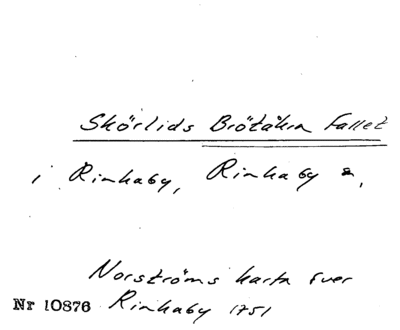 Skörlids Brötåkra Fallet
i Rinkaby, Rinkaby s,
Norströms karta över
Nr 10876 Rinkaby 1751